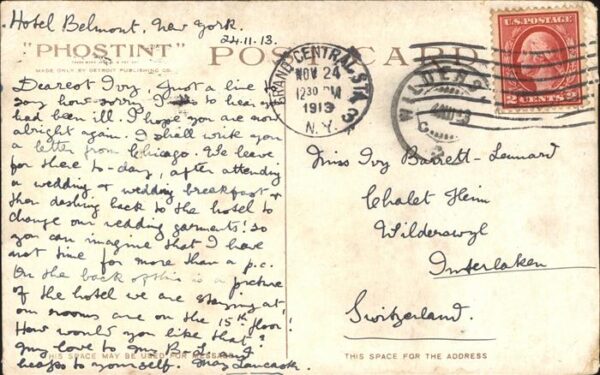 Hotel Belmont, New York.
24.11.13.
"PHOSTINT" POST CARD
MADE ONLY BY DETROIT PUBLISHING CO.
Dearest Ivy, Just a line to
say how sorry I to hear you
had been ill. I hope you are now
alright again. I shall write you
a letter from Chicago. We leave
for there to-day, after attending
a wedding & wedding breakfast &
then dashing back to the hotel to
change our wedding garments! so
you can imagine that I have
not time for more than a p.c.
On the back of this is a picture
of the hotel we are staying at,
our rooms are on the 15th floor!
How would you like that?
My love to my &
heaps to yourself. May Lancaster.
THIS SPACE MAY BE USED FOR MESSAGE
GRAND CENTRAL STA.
NOV 24
12 30 PM
1913
N.Y.
3
WILDERSWIL
U.S. POSTAGE
2 CENTS 2
Miss Ivy Barrett-Lennard
Chalet Heim
Wilderswyl
Interlaken
Switzerland.
THIS SPACE FOR THE ADDRESS